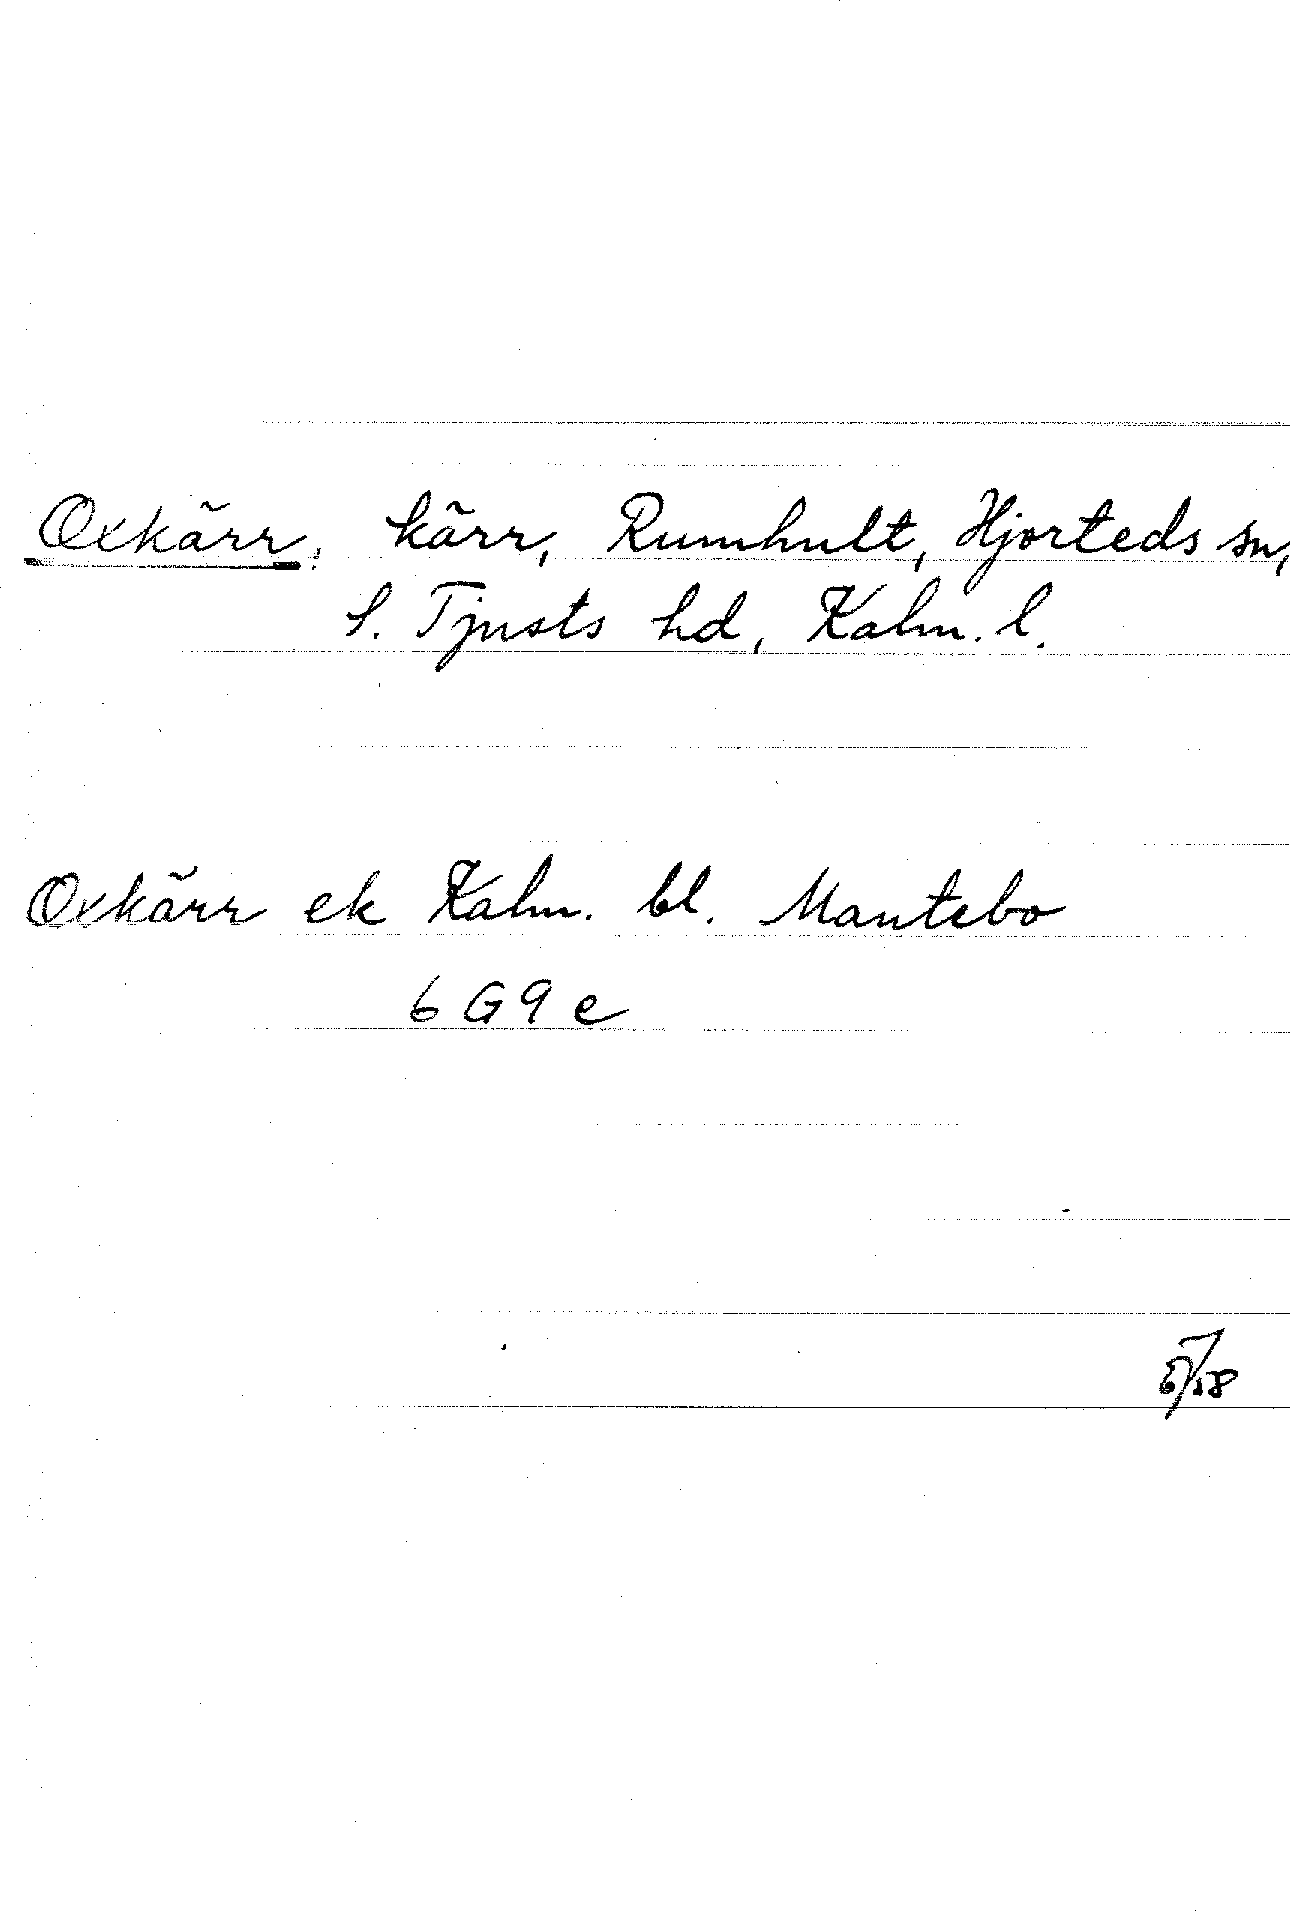 Oxkärr, kärr, Rumhult, Hjorteds sn,
S. Tjusts hd, Kalm. l.
Oxkärr ek Kalm. bl. Mantebo
6 G 9 e
5/58